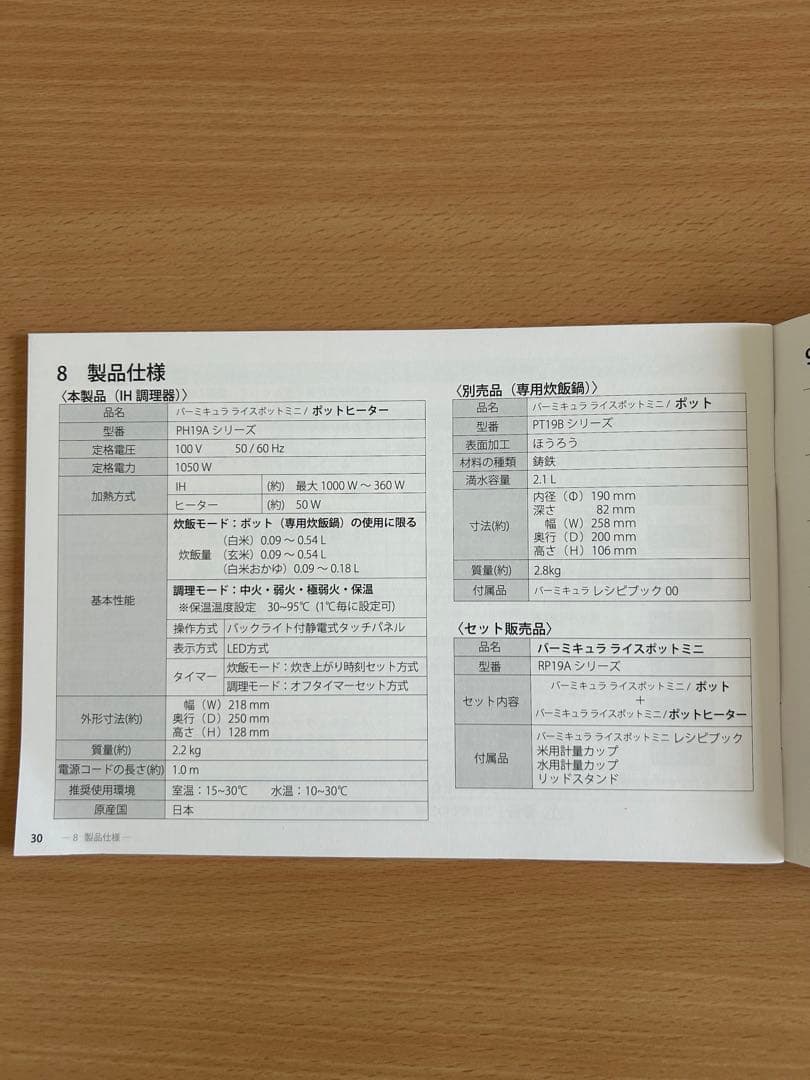 8 製品仕様
〈本製品（IH 調理器）〉
品名 バーミキュラ ライスポットミニ / ポットヒーター
型番 PH19A シリーズ
定格電圧 100 V 50 / 60 Hz
定格電力 1050 W
加熱方式 IH (約) 最大 1000 W ～ 360 W
ヒーター (約) 50 W
基本性能
炊飯モード：ポット（専用炊飯鍋）の使用に限る
炊飯量 （白米）0.09 ～ 0.54 L
（玄米）0.09 ～ 0.54 L
（白米おかゆ）0.09 ～ 0.18 L
調理モード：中火・弱火・極弱火・保温
※保温温度設定 30~95℃ (1℃毎に設定可)
操作方式 バックライト付静電式タッチパネル
表示方式 LED方式
タイマー 炊飯モード：炊き上がり時刻セット方式
調理モード：オフタイマーセット方式
外形寸法(約) 幅（W）218 mm
奥行（D）250 mm
高さ（H）128 mm
質量(約) 2.2 kg
電源コードの長さ(約) 1.0 m
推奨使用環境 室温：15~30℃ 水温：10~30℃
原産国 日本
30 ― 8 製品仕様 ―
〈別売品（専用炊飯鍋）〉
品名 バーミキュラ ライスポットミニ / ポット
型番 PT19B シリーズ
表面加工 ほうろう
材料の種類 鋳鉄
満水容量 2.1 L
寸法(約) 内径（Φ）190 mm
深さ 82 mm
幅（W）258 mm
奥行（D）200 mm
高さ（H）106 mm
質量(約) 2.8kg
付属品 バーミキュラ レシピブック 00
〈セット販売品〉
品名 バーミキュラ ライスポットミニ
型番 RP19A シリーズ
セット内容 バーミキュラ ライスポットミニ / ポット
＋
バーミキュラ ライスポットミニ / ポットヒーター
付属品 バーミキュラ ライスポットミニ レシピブック
米用計量カップ
水用計量カップ
リッドスタンド